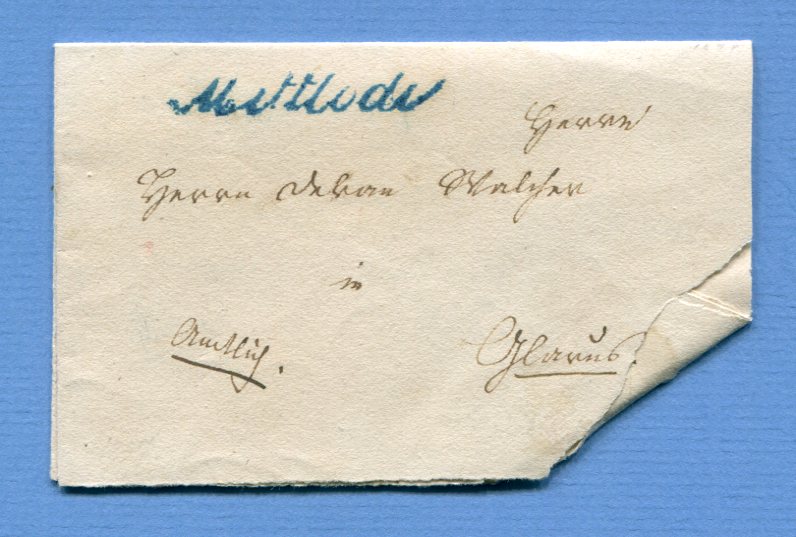 Mettlode
Herrn
Herrn Dekan Walcher
in
Amtlich.
Glarus.